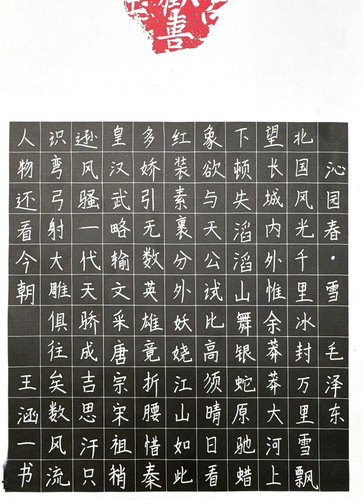 善
沁园春·雪 毛泽东
北国风光千里冰封万里雪飘
望长城内外惟余莽莽大河上
下顿失滔滔山舞银蛇原驰蜡
象欲与天公试比高须晴日看
红装素裹分外妖娆江山如此
多娇引无数英雄竟折腰惜秦
皇汉武略输文采唐宗宋祖稍
逊风骚一代天骄成吉思汗只
识弯弓射大雕俱往矣数风流
人物还看今朝 王涵一书